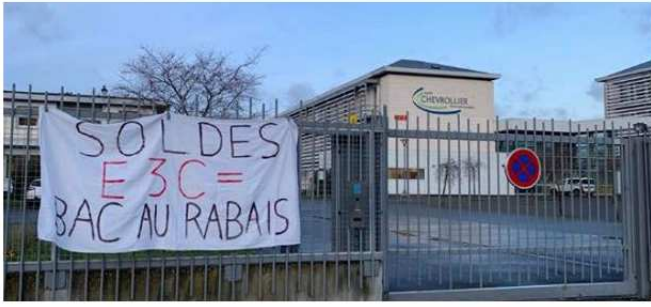 SOLDES
E3C=
BAC AU RABAIS
CHEVROLLIER